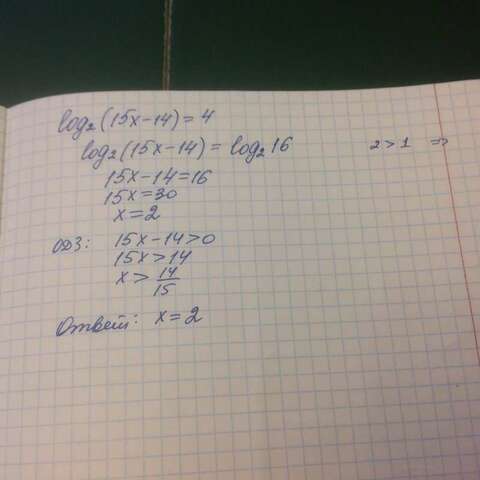 log₂(15x-14)=4
log₂(15x-14)=log₂16 2>1 ⇒
15x-14=16
15x=30
x=2
ОДЗ: 15x-14>0
15x>14
x>14/15
Ответ: x=2